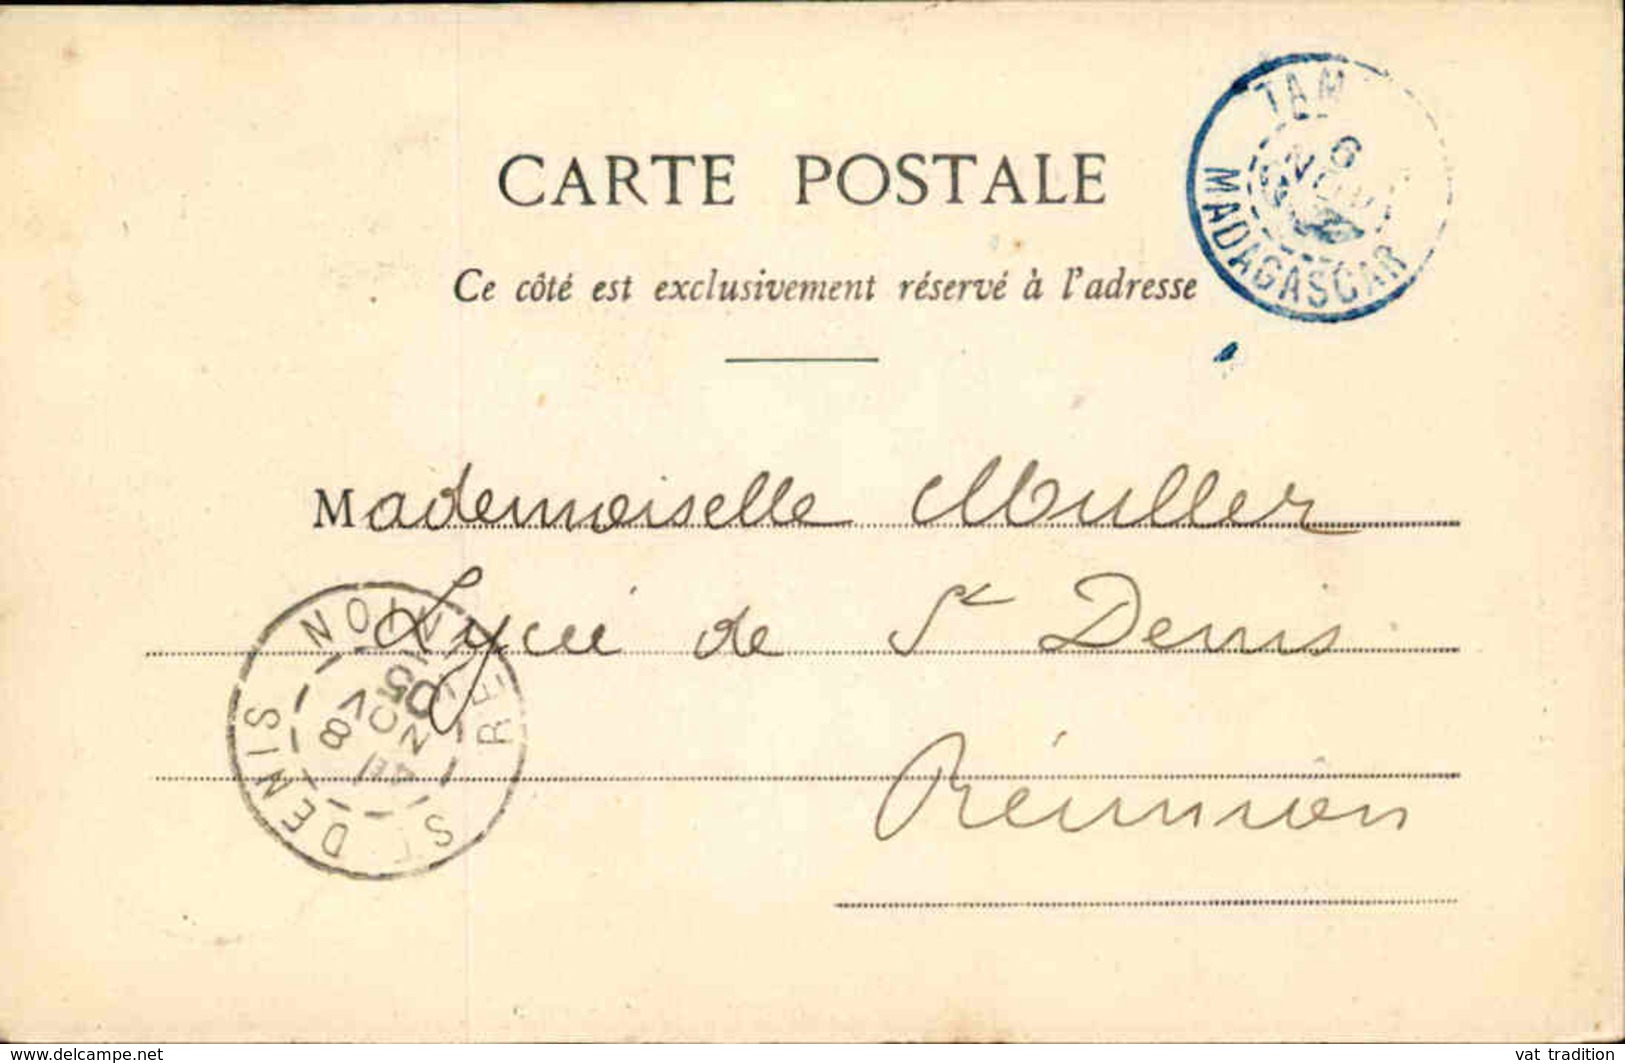 CARTE POSTALE
Ce côté est exclusivement réservé à l'adresse
TAM
6
MADAGASCAR
Mademoiselle Muller
Lycée de St Denis
Réunion
ST DENIS
RÉUNION
4E
8
NOV
05
www.delcampe.net
vat tradition